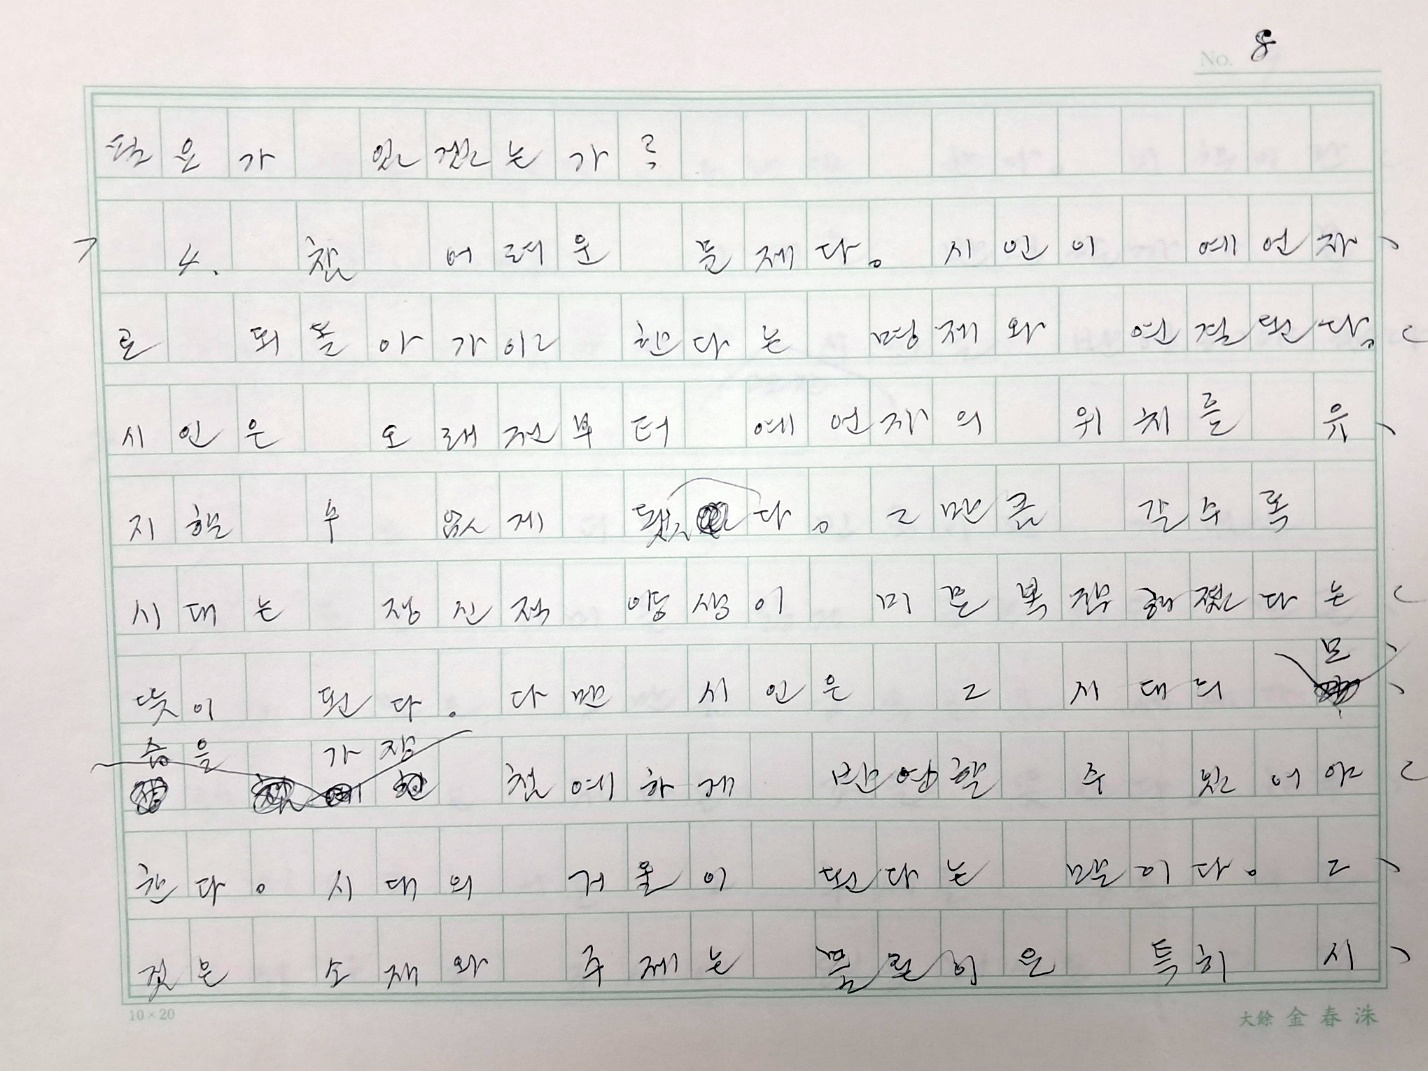 No. 8
필요가 있겠는가를
4. 참 어려운 문제다。 시인이 예언자
로 되돌아가야 한다는 명제와 연결된다。
시인은 오래전부터 예언자의 위치를 유
지할 수 없게 됐다。 그만큼 갈수록
시대는 정신적 양상이 미묘복잡해졌다는
뜻이 된다。 다만 시인은 그 시대의 모
습을 가장 첨예하게 반영할 수 있어야
한다。 시대의 거울이 된다는 말이다。 그
것은 소재와 주제는 물론이요 특히 시
10×20
大餘 金春洙